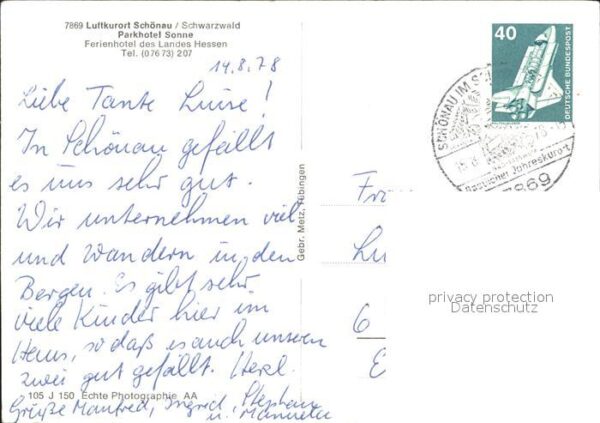 7869 Luftkurort Schönau / Schwarzwald
Parkhotel Sonne
Ferienhotel des Landes Hessen
Tel. (0 76 73) 207
14.8.78
Liebe Tante Luise!
In Schönau gefällt
es uns sehr gut.
Wir unternehmen viel
und wandern in den
Bergen. Es gibt sehr
viele Kinder hier im
Haus, so daß es auch unseren
zwei gut gefällt. Herzl.
Grüße Manfred, Ingrid, Stephan
u. Manuela
105 J 150 Echte Photographie AA
Gebr. Metz, Tübingen
40
DEUTSCHE BUNDESPOST
SCHÖNAU IM
Staatlicher Jahreskurort
7869
Frä
Lu
6
E
privacy protection
Datenschutz